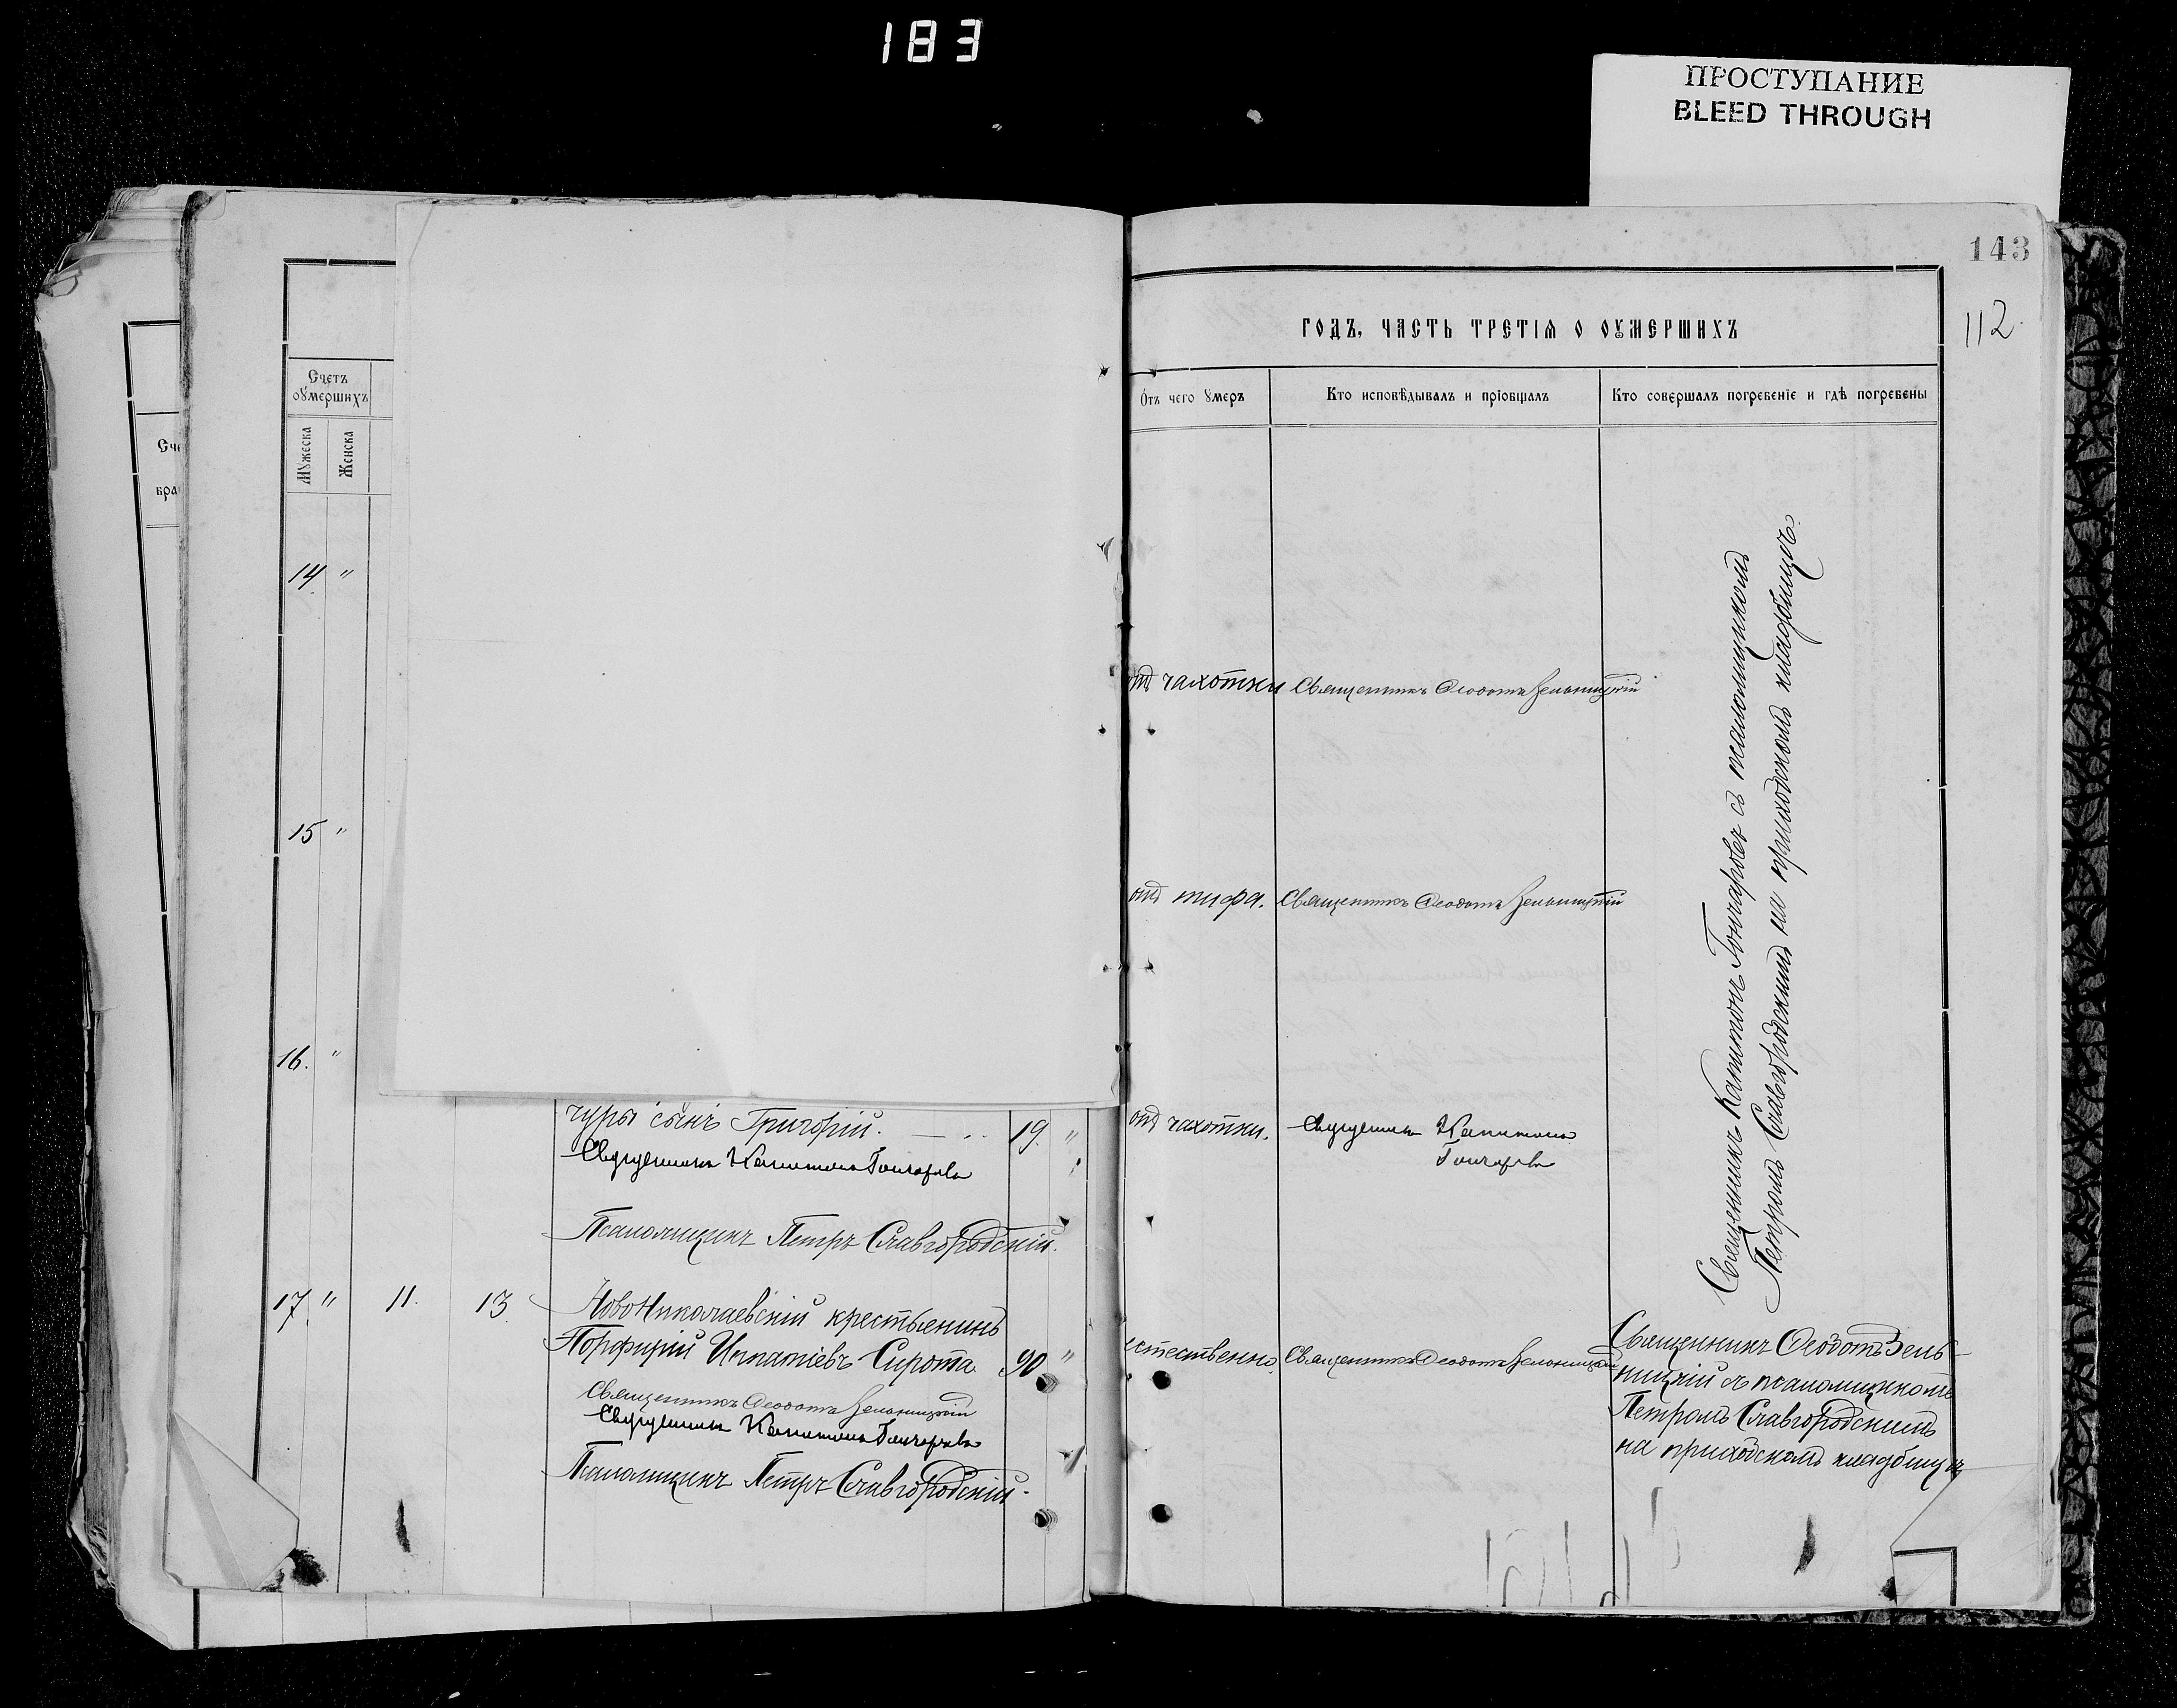 183
ПРОСТУПАНИЕ
BLEED THROUGH
143
112.
Счетъ
оумершихъ
Мужеска
Женска
Сче
бра
14 "
15 "
16. "
чуры сынъ Григорій. 19. "
Священникъ Капитонъ Гончаровъ
Псаломщикъ Петръ Славгородскій.
17. " 11. 13.
Новониколаевскій крестьянинъ
Порфирій Игнатіевъ Сирота 90 "
Священникъ Ѳеодотъ Зельницкій
Священникъ Капитонъ Гончаровъ
Псаломщикъ Петръ Славгородскій.
ГОДЪ, ЧАСТЬ ТРЕТІѦ О ОУМЕРШИХЪ
Отъ чего умеръ
Кто исповѣдывалъ и пріобщалъ
Кто совершалъ погребеніе и гдѣ погребены
отъ чахотки Священникъ Ѳеодотъ Зельницкій
отъ тифа. Священникъ Ѳеодотъ Зельницкій
отъ чахотки. Священникъ Капитонъ
Гончаровъ
Священникъ Капитонъ Гончаровъ съ псаломщикомъ
Петромъ Славгородскимъ на приходскомъ кладбищѣ.
естественно. Священникъ Ѳеодотъ Зельницкій
Священникъ Ѳеодотъ Зель-
ницкій съ псаломщикомъ
Петромъ Славгородскимъ
на приходскомъ кладбищѣ